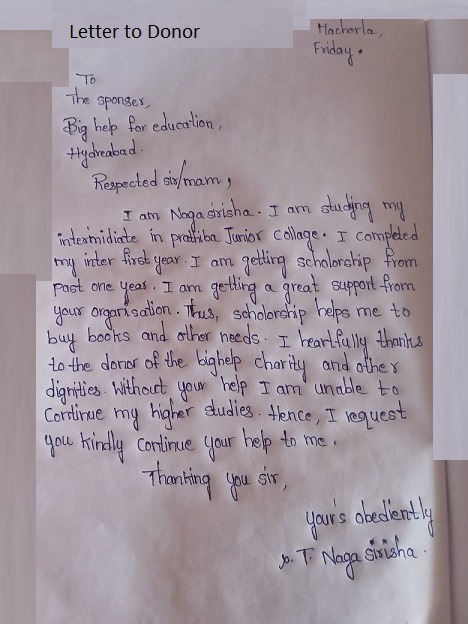 Letter to Donor
Macherla,
Friday.
To
The sponser,
Big help for education,
Hydreabad.
Respected sir/mam,
I am Naga sirisha. I am studying my
intermidiate in prathiba Junior collage. I completed
my inter first year. I am getting scholorship from
past one year. I am getting a great support from
your organisation. Thus, scholorship helps me to
buy books and other needs. I heartfully thanks
to the donor of the bighelp charity and other
dignities. Without your help I am unable to
Continue my higher studies. Hence, I request
you kindly continue your help to me.
Thanking you sir,
your's obediently
T. Naga sirisha.